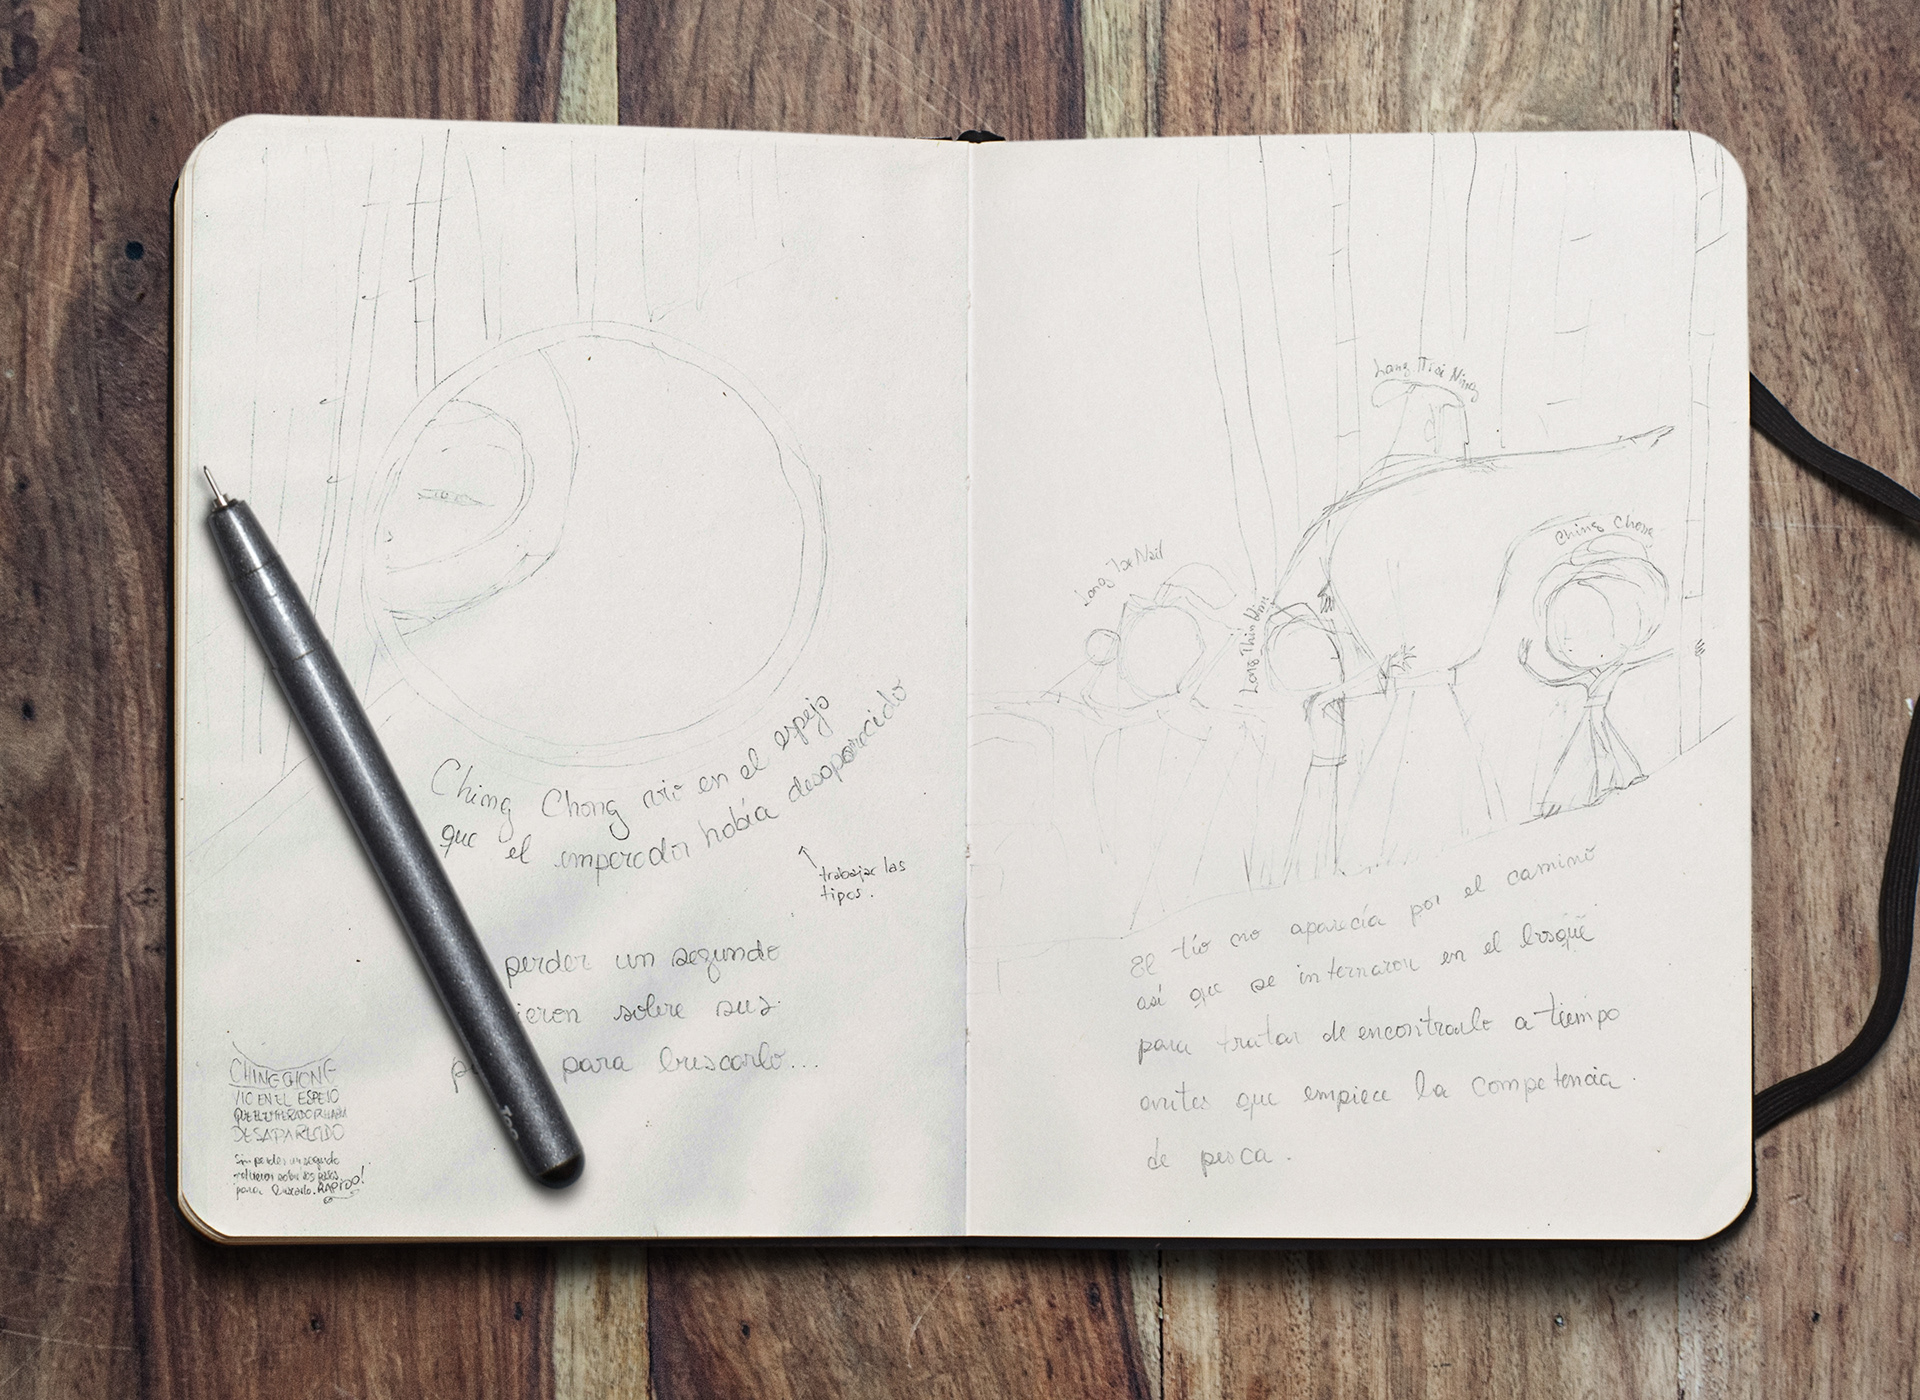 Ching Chong vio en el espejo
que el emperador había desaparecido
trabajar las
tipos.
perder un segundo
ieron sobre sus
para buscarlo...
CHING CHONG
VIO EN EL ESPEJO
QUE EL EMPERADOR HABIA
DESAPARECIDO
Sin perder un segundo
sobre sus pasos
para buscarlo. RAPIDO!
Long Ning
Ching Chong
Long Toe Nail
Long Thin Ning
El tío no aparecía por el camino
así que se internaron en el bosque
para tratar de encontrarlo a tiempo
antes que empiece la competencia
de pesca.